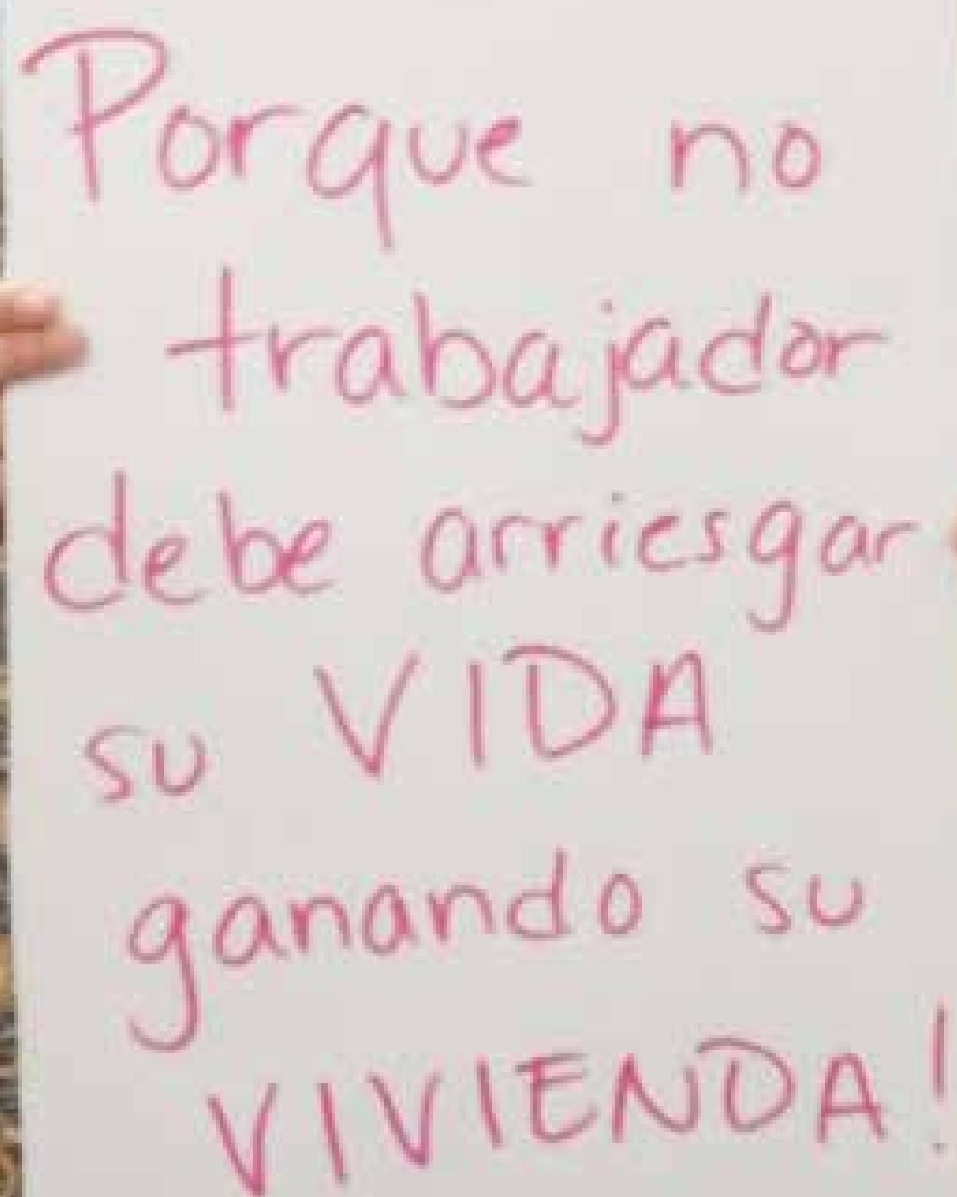 Porque no
trabajador
debe arriesgar
su VIDA
ganando su
VIVIENDA!